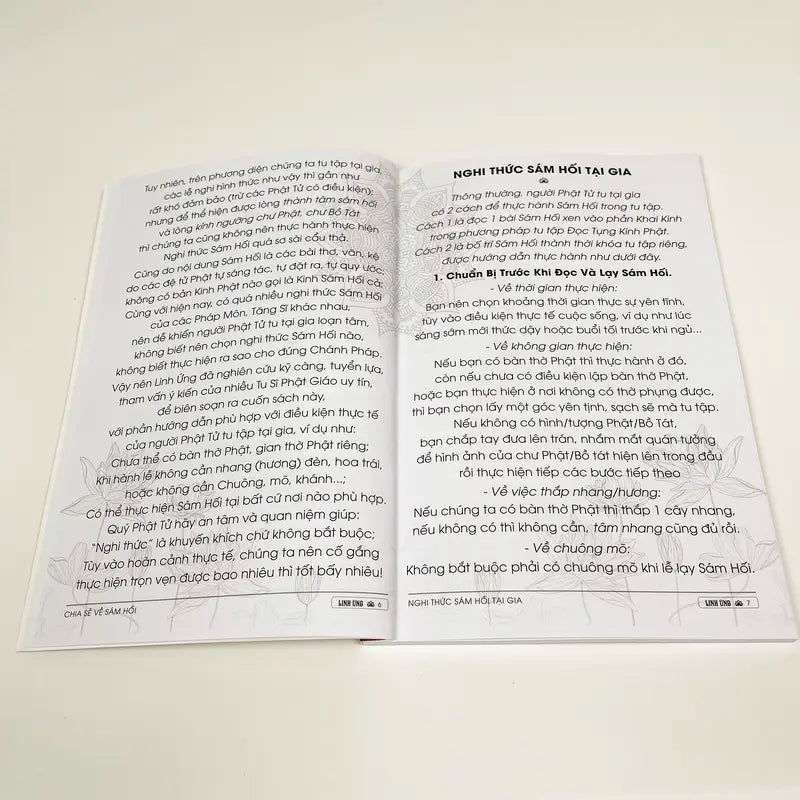 Tuy nhiên, trên phương diện chúng ta tu tập tại gia,
các lễ nghi hình thức như vậy thì gần như
rất khó đảm bảo (trừ các Phật Tử có điều kiện);
nhưng để thể hiện được lòng thành tâm sám hối
và lòng kính ngưỡng chư Phật, chư Bồ Tát
thì chúng ta cũng không nên thực hành thực hiện
Nghi thức Sám Hối quá sơ sài cẩu thả.
Cũng do nội dung Sám Hối là các bài thơ, văn, kệ
do các đệ tử Phật tự sáng tác, tự đặt ra, tự quy ước;
không có bản Kinh Phật nào gọi là Kinh Sám Hối cả;
Cùng với hiện nay, có quá nhiều nghi thức Sám Hối
của các Pháp Môn, Tăng Sĩ khác nhau,
nên dễ khiến người Phật Tử tu tại gia loạn tâm,
không biết nên chọn nghi thức Sám Hối nào,
không biết thực hiện ra sao cho đúng Chánh Pháp.
Vậy nên Linh Ứng đã nghiên cứu kỹ càng, tuyển lựa,
tham vấn ý kiến của nhiều Tu Sĩ Phật Giáo uy tín,
để biên soạn ra cuốn sách này,
với phần hướng dẫn phù hợp với điều kiện thực tế
của người Phật Tử tu tập tại gia, ví dụ như:
Chưa thể có bàn thờ Phật, gian thờ Phật riêng;
Khi hành lễ không cần nhang (hương) đèn, hoa trái,
hoặc không cần Chuông, mõ, khánh...;
Có thể thực hiện Sám Hối tại bất cứ nơi nào phù hợp.
Quý Phật Tử hãy an tâm và quan niệm giúp:
"Nghi thức" là khuyến khích chứ không bắt buộc;
Tùy vào hoàn cảnh thực tế, chúng ta nên cố gắng
thực hiện trọn vẹn được bao nhiêu thì tốt bấy nhiêu!
CHIA SẺ VỀ SÁM HỐI
LINH ỨNG 6
NGHI THỨC SÁM HỐI TẠI GIA
Thông thường, người Phật Tử tu tại gia
có 2 cách để thực hành Sám Hối trong tu tập.
Cách 1 là đọc 1 bài Sám Hối xen vào phần Khai Kinh
trong phương pháp tu tập Đọc Tụng Kinh Phật.
Cách 2 là bố trí Sám Hối thành thời khóa tu tập riêng,
được hướng dẫn thực hành như dưới đây.
1. Chuẩn Bị Trước Khi Đọc Và Lạy Sám Hối.
- Về thời gian thực hiện:
Bạn nên chọn khoảng thời gian thực sự yên tĩnh,
tùy vào điều kiện thực tế cuộc sống, ví dụ như lúc
sáng sớm mới thức dậy hoặc buổi tối trước khi ngủ...
- Về không gian thực hiện:
Nếu bạn có bàn thờ Phật thì thực hành ở đó,
còn nếu chưa có điều kiện lập bàn thờ Phật,
hoặc bạn thực hiện ở nơi không có thờ phụng được,
thì bạn chọn lấy một góc yên tịnh, sạch sẽ mà tu tập.
Nếu không có hình/tượng Phật/Bồ Tát,
bạn chắp tay đưa lên trán, nhắm mắt quán tưởng
để hình ảnh của chư Phật/Bồ tát hiện lên trong đầu
rồi thực hiện tiếp các bước tiếp theo
- Về việc thắp nhang/hương:
Nếu chúng ta có bàn thờ Phật thì thắp 1 cây nhang,
nếu không có thì không cần, tâm nhang cũng đủ rồi.
- Về chuông mõ:
Không bắt buộc phải có chuông mõ khi lễ lạy Sám Hối.
NGHI THỨC SÁM HỐI TẠI GIA
LINH ỨNG 7